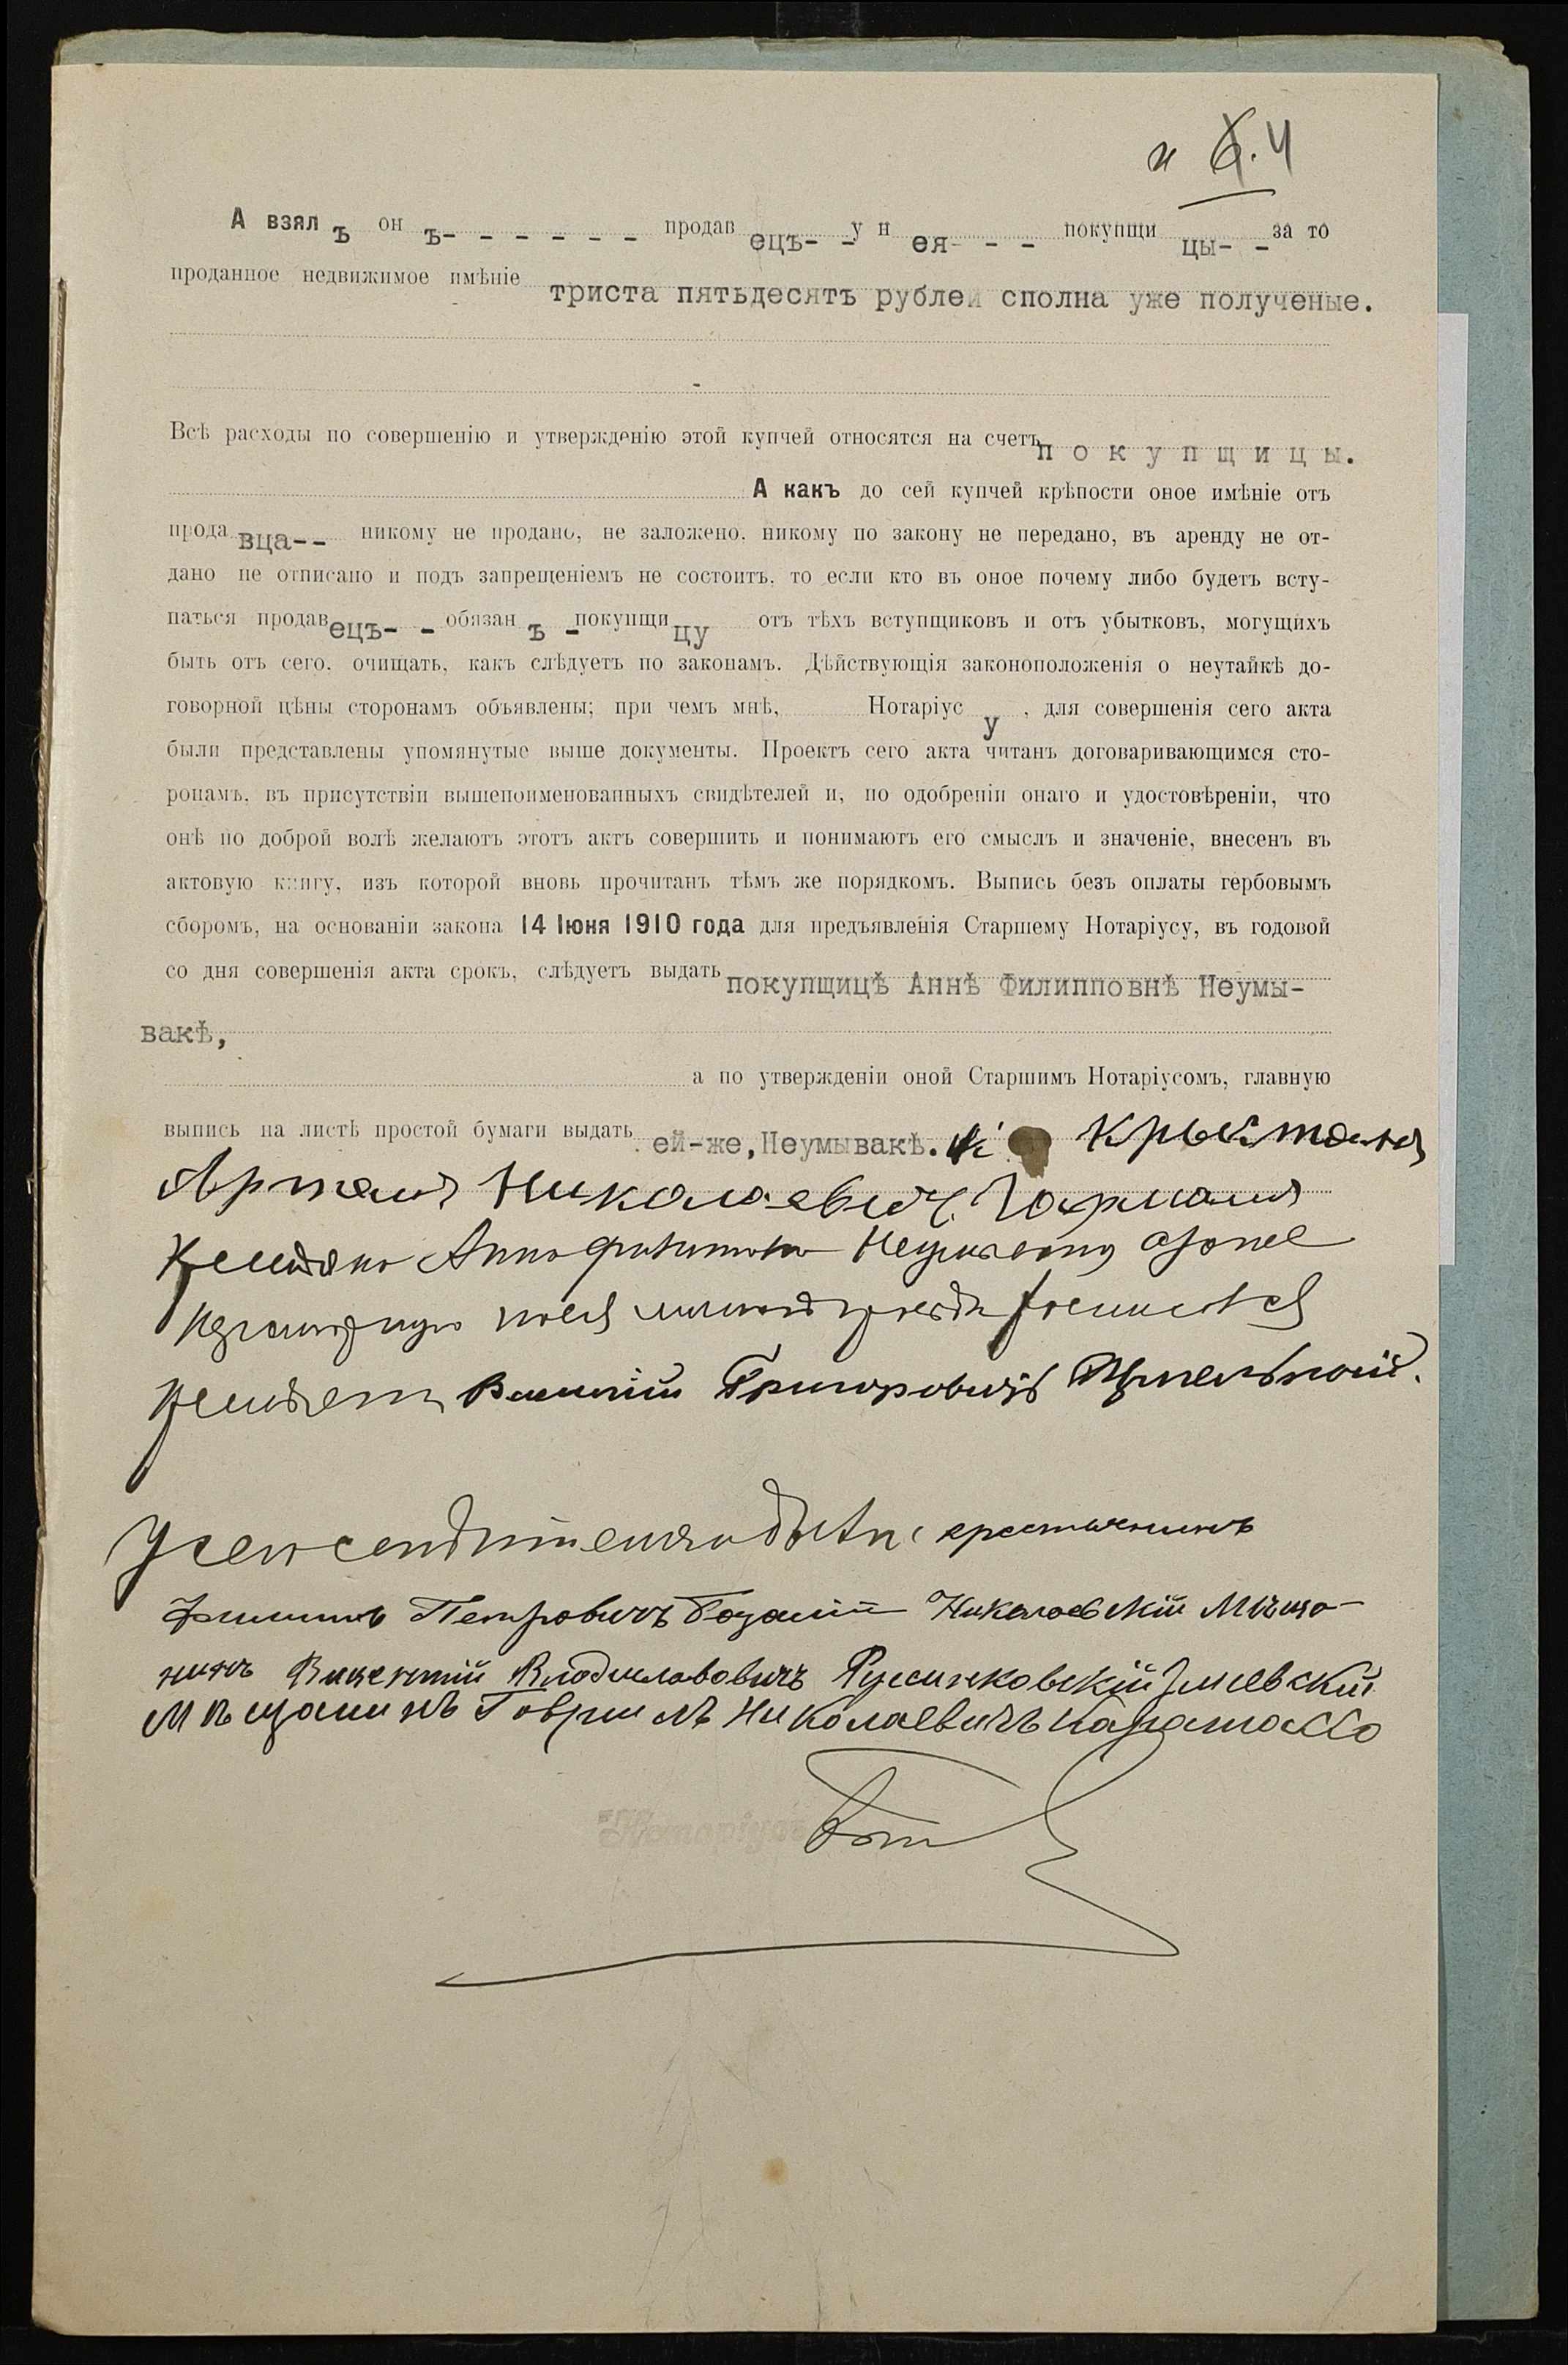 и 6. 4
А взялъ онъ- - - - - - - продавецъ- -у нея- - - покупщицы- -за то
проданное недвижимое имѣніе триста пятьдесятъ рублей сполна уже полученые.
Всѣ расходы по совершенію и утвержденію этой купчей относятся на счетъ покупщицы.
А какъ до сей купчей крѣпости оное имѣніе отъ
продавца-- никому не продано, не заложено, никому по закону не передано, въ аренду не от-
дано не отписано и подъ запрещеніемъ не состоитъ, то если кто въ оное почему либо будетъ всту-
паться продавецъ- - обязанъ -покупщицу отъ тѣхъ вступщиковъ и отъ убытковъ, могущихъ
быть отъ сего, очищать, какъ слѣдуетъ по законамъ. Дѣйствующія законоположенія о неутайкѣ до-
говорной цѣны сторонамъ объявлены; при чемъ мнѣ, Нотаріусу, для совершенія сего акта
были представлены упомянутые выше документы. Проектъ сего акта читанъ договаривающимся сто-
ронамъ, въ присутствіи вышепоименованныхъ свидѣтелей и, по одобреніи онаго и удостовѣреніи, что
онѣ по доброй волѣ желаютъ этотъ актъ совершить и понимаютъ его смыслъ и значеніе, внесенъ въ
актовую книгу, изъ которой вновь прочитанъ тѣмъ же порядкомъ. Выпись безъ оплаты гербовымъ
сборомъ, на основаніи закона 14 Іюня 1910 года для предъявленія Старшему Нотаріусу, въ годовой
со дня совершенія акта срокъ, слѣдуетъ выдать покупщицѣ Аннѣ Филипповнѣ Неумы-
вакѣ,
а по утвержденіи оной Старшимъ Нотаріусомъ, главную
выпись на листѣ простой бумаги выдать ей-же, Неумывакѣ.
Николаевичъ
Анна
Григоровичъ
крестьянинъ
Филиппъ Петровичъ Николаевскій Мѣща-
нинъ Викентій Владиславовичъ Русичковскій Змиевскій
Мѣщанинъ Гавриилъ Николаевичъ
Нотаріусъ